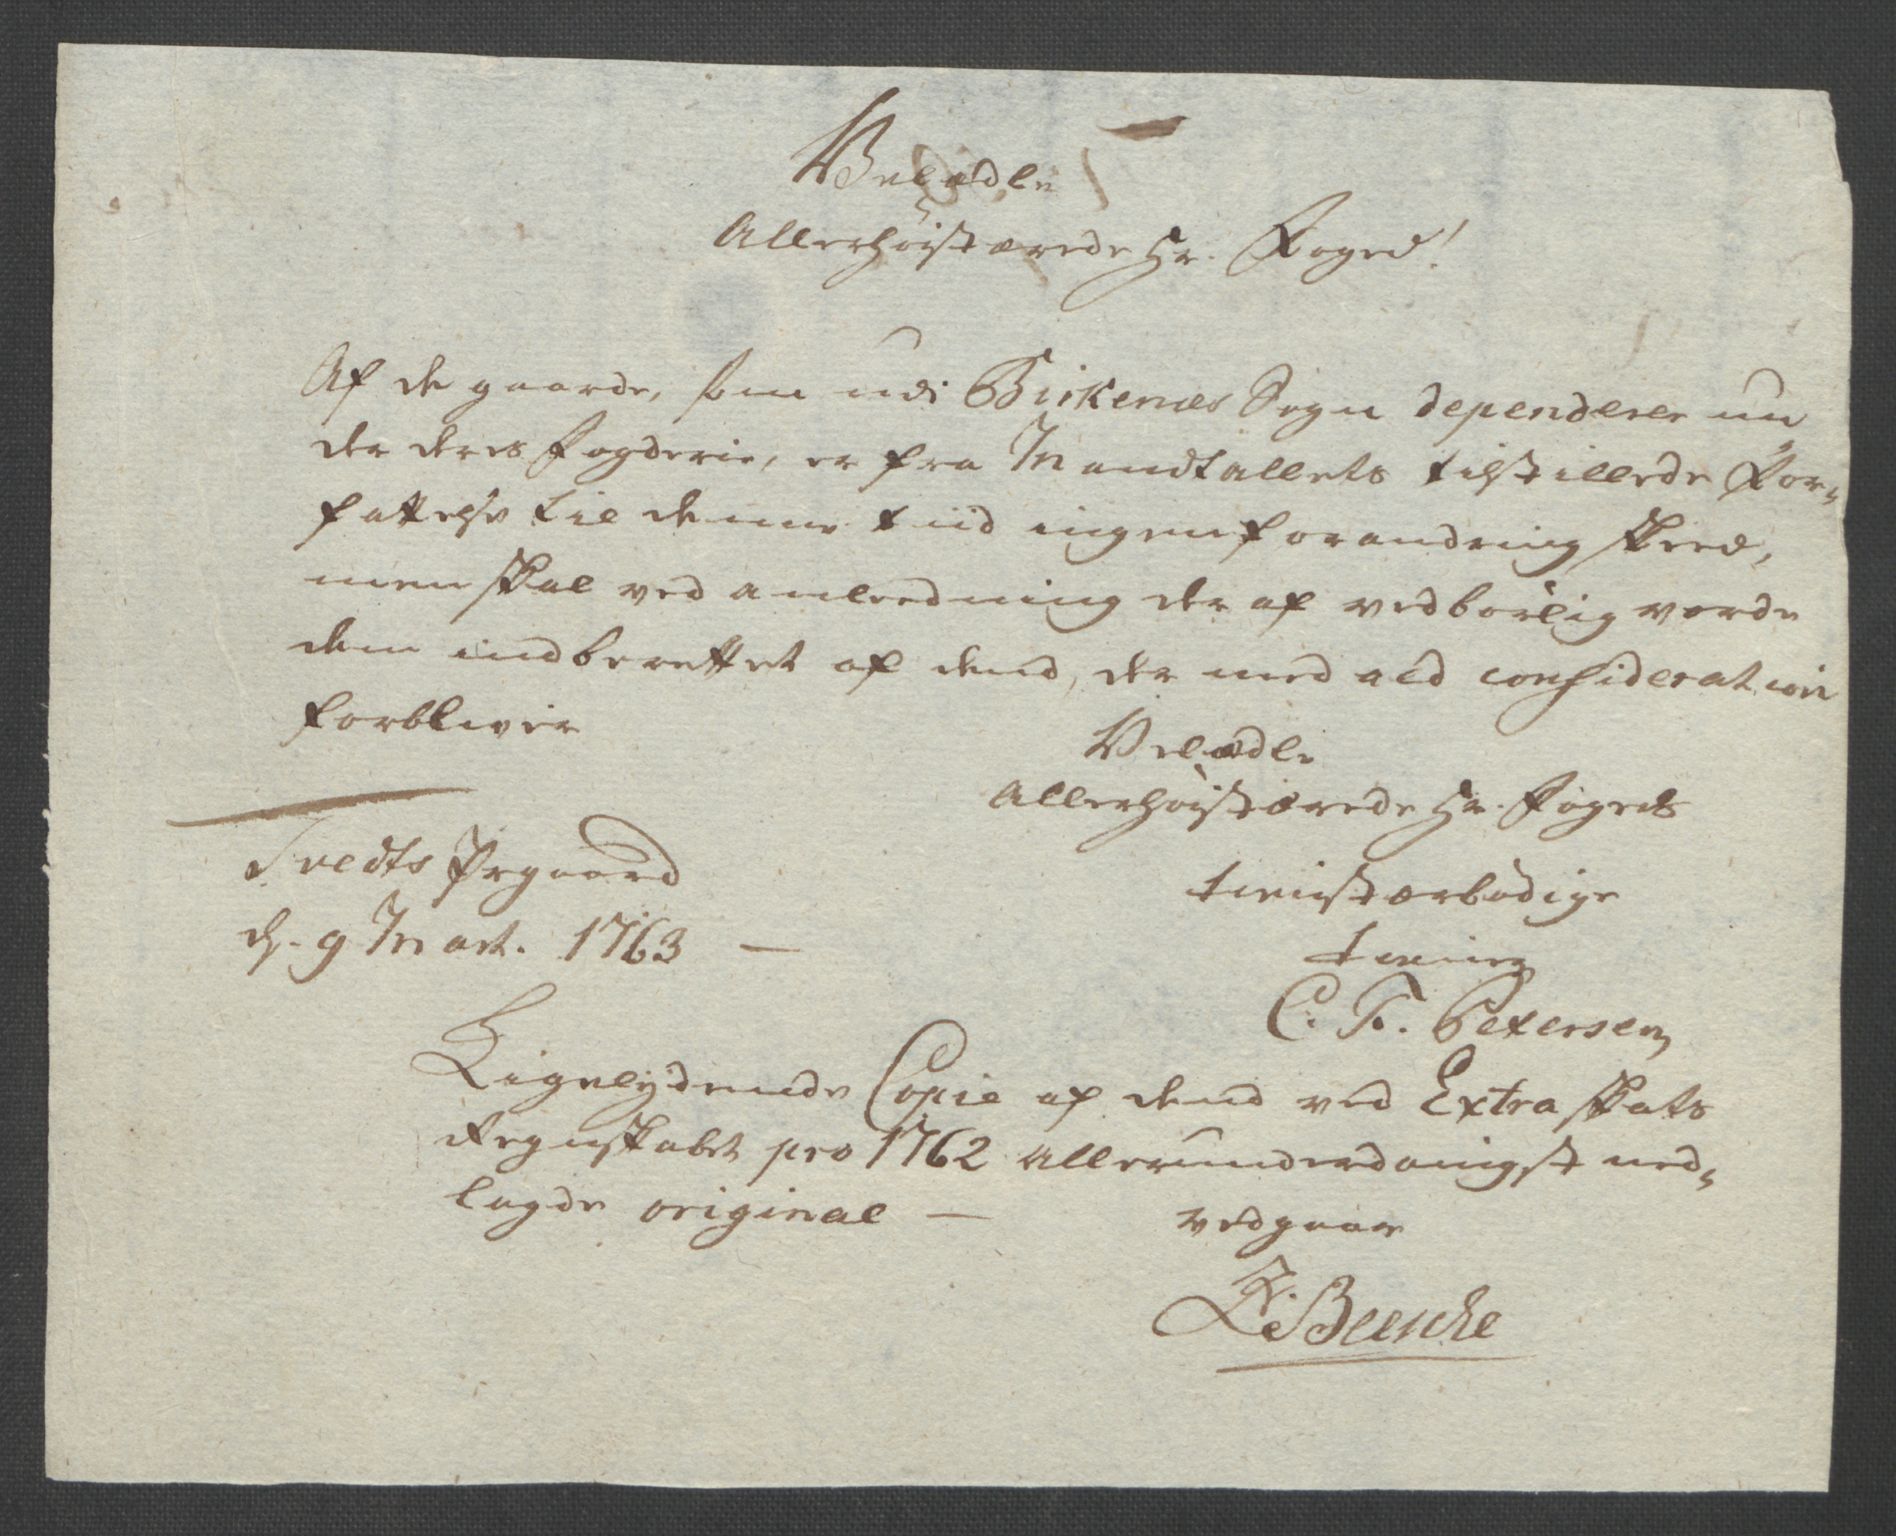 Velædle
Allerhøistærede Hr. Foged!
Af de gaarde, som udi Birkenæs Sogn dependerer un
der deres Fogderie, er fra Mandtallets tilstillede For=
fattelse til denne tiid ingen forandring skeed,
men skal ved anledning der af vedbørlig vorde
dem indberettet af dend, der med ald consideration
forbliver
Velædle
Allerhøistærede Hr. Fogeds
Tvedts Prgaard
tienstærbødige
d. 9 Mart. 1763 —
tiener
C. F. Petersen
Ligelydende Copie af dend ved Extra skats
Regnskabet pro 1762 allerunderdanigst ned=
lagde original —
vedgaar
Beuche